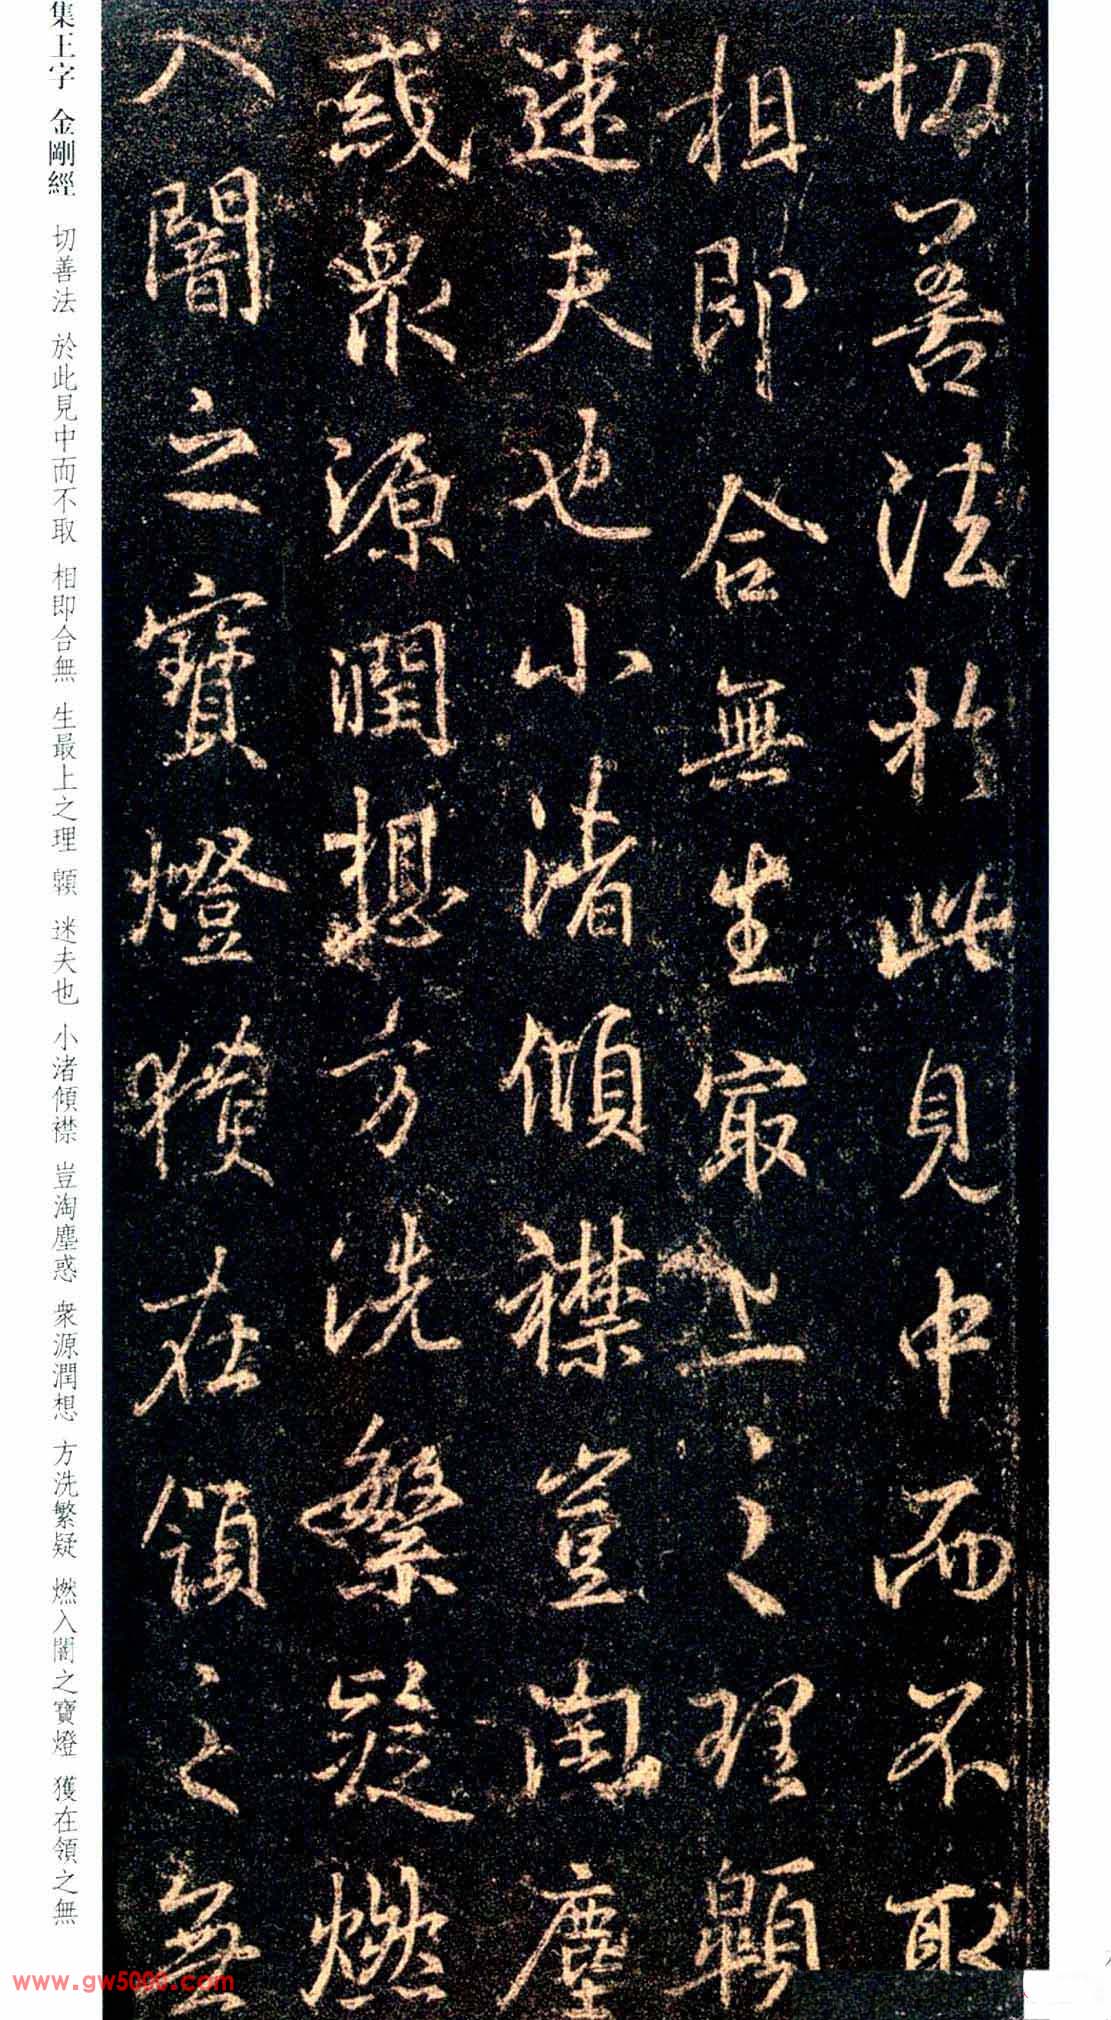 切善法於此見中而不取
相即合無生最上之理顯
迷夫也小渚傾襟豈淘塵
惑衆源潤想方洗繁疑燃
入闇之寶燈獲在領之無
集王字 金剛經 切善法 於此見中而不取 相即合無 生最上之理 顯 迷夫也 小渚傾襟 豈淘塵惑 衆源潤想 方洗繁疑 燃入闇之寶燈 獲在領之無
www.gw5000.com